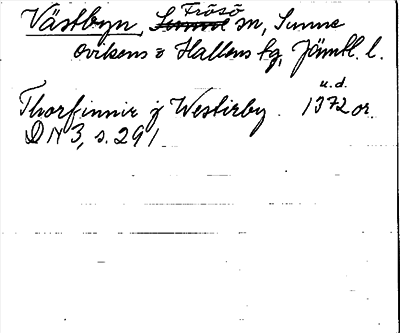 Västbyn, Frösö sn, Sunne
Ovikens o Hallens tg, Jämtl. l.
u.d.
Thorfinnir j Westirby 1372 or.
DN 3, s. 291